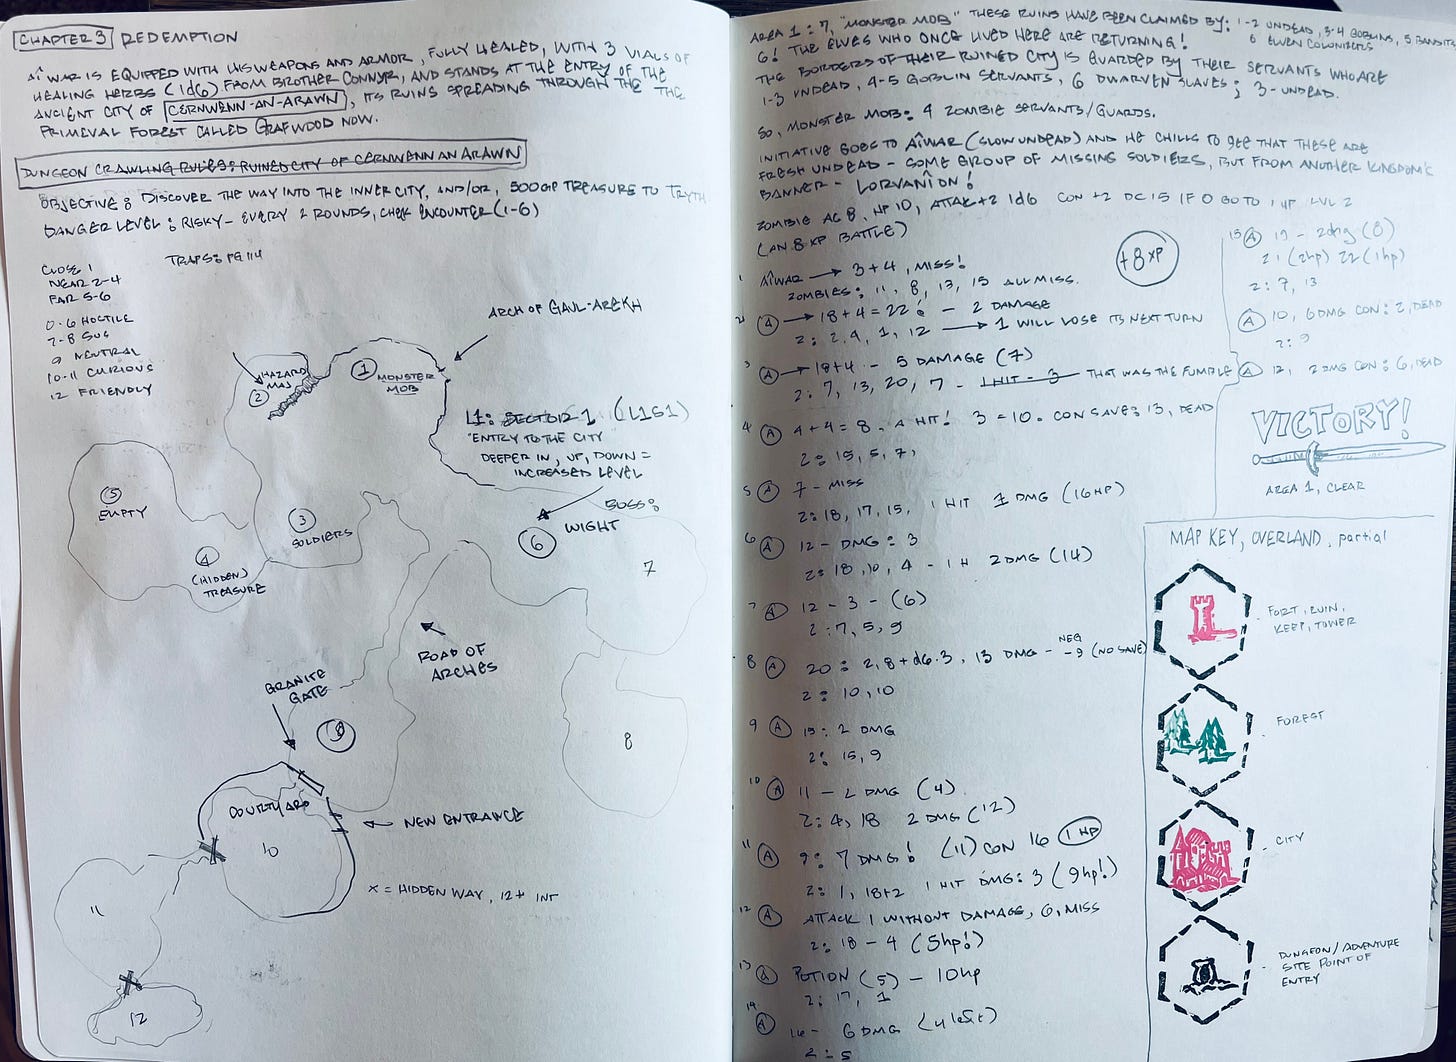 CHAPTER 3 REDEMPTION
AÎWAR IS EQUIPPED WITH HIS WEAPONS AND ARMOR, FULLY HEALED, WITH 3 VIALS OF
HEALING HERBS (1d6) FROM BROTHER CONNYR, AND STANDS AT THE ENTRY OF THE
ANCIENT CITY OF CERNWENN-AN-ARAWN, ITS RUINS SPREADING THROUGH THE THE
PRIMEVAL FOREST CALLED GRAFWOOD NOW.
DUNGEON CRAWLING RULES: RUINED CITY OF CERNWENN AN ARAWN
OBJECTIVE: DISCOVER THE WAY INTO THE INNER CITY, AND/OR, 500GP TREASURE TO TRYTH
DANGER LEVEL: RISKY - EVERY 2 ROUNDS, CHECK ENCOUNTER (1-6)
CLOSE 1
NEAR 2-4
FAR 5-6
TRAPS: PG 114
0-6 HOSTILE
7-8 SUS
9 NEUTRAL
10-11 CURIOUS
12 FRIENDLY
ARCH OF GAUL-AREKH
HAZARD
MAJ
2
1 MONSTER
MOB
L1: SECTOR 1 (L1S1)
"ENTRY TO THE CITY
DEEPER IN, UP, DOWN =
INCREASED LEVEL
5
EMPTY
3
SOLDIERS
4
(HIDDEN)
TREASURE
BOSS:
WIGHT
6
7
ROAD OF
ARCHES
GRANITE
GATE
9
8
COURTYARD
10
NEW ENTRANCE
X = HIDDEN WAY, 12+ INT
11
12
AREA 1: 7, "MONSTER MOB" THESE RUINS HAVE BEEN CLAIMED BY: 1-2 UNDEAD, 3-4 GOBLINS, 5 BANDITS
6 ELVEN COLONIZERS
6! THE ELVES WHO ONCE LIVED HERE ARE RETURNING!
THE BORDERS OF THEIR RUINED CITY IS GUARDED BY THEIR SERVANTS WHO ARE
1-3 UNDEAD, 4-5 GOBLIN SERVANTS, 6 DWARVEN SLAVES; 3-UNDEAD.
SO, MONSTER MOB: 4 ZOMBIE SERVANTS/GUARDS.
INITIATIVE GOES TO AÎWAR (SLOW UNDEAD) AND HE CHILLS TO SEE THAT THESE ARE
FRESH UNDEAD - SOME GROUP OF MISSING SOLDIERS, BUT FROM ANOTHER KINGDOM'S
BANNER - LORVANÎON!
ZOMBIE AC 8, HP 10, ATTAK +2 1d6 CON +2 DC 15 IF 0 GO TO 1 HP LVL 2
(AN 8 XP BATTLE)
+8 XP
1 AÎWAR → 3+4, MISS!
ZOMBIES: 11, 8, 13, 15 ALL MISS.
2 A → 18+4 = 22! - 2 DAMAGE
Z: 2, 9, 1, 12 → 1 WILL LOSE ITS NEXT TURN
3 A → 18+4 - 5 DAMAGE (7)
Z: 7, 13, 20, 7 - 1 HIT - 3 THAT WAS THE FUMBLE
4 A 4+4 = 8. A HIT! 3 = 10. CON SAVE: 13, DEAD
Z: 15, 5, 7,
5 A 7 - MISS
Z: 18, 17, 15, 1 HIT 1 DMG (16HP)
6 A 12 - DMG: 3
Z: 18, 10, 4 - 1 H 2 DMG (14)
7 A 12 - 3 - (6)
Z: 7, 5, 9
8 A 20: 2, 8+d6.3, 13 DMG - NEG -9 (NO SAVE)
Z: 10, 10
9 A 19: 2 DMG
Z: 15, 9
10 A 11 - 2 DMG (4)
Z: 4, 18 2 DMG (12)
11 A 9: 7 DMG! (11) CON 16 1 HP
Z: 1, 18+2 1 HIT DMG: 3 (9hp!)
12 A ATTACK 1 WITHOUT DAMAGE, 6, MISS
Z: 18 - 4 (5hp!)
13 A POTION (5) - 10hp
Z: 17, 1
14 A 16 - 6 DMG (4 left)
Z: 5
15 A 19 - 2dmg (8)
Z: 7, 13
A 10, 6 DMG CON: 2, DEAD
Z: 9
A 12, 2 DMG CON: 6, DEAD
VICTORY!
AREA 1, CLEAR
MAP KEY, OVERLAND, partial
FORT, RUIN,
KEEP, TOWER
FOREST
CITY
DUNGEON/ADVENTURE
SITE POINT OF
ENTRY